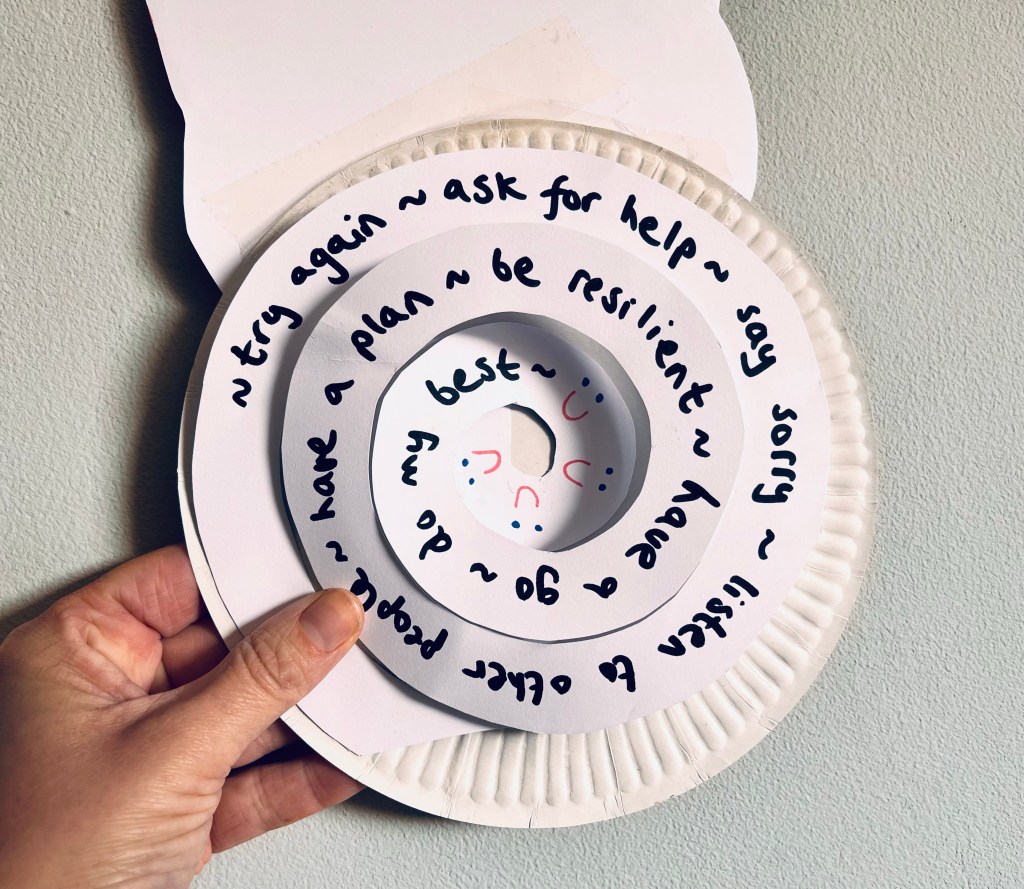 ~ try again ~ ask for help ~ say sorry ~ listen to other people ~ have a plan ~ be resilient ~ have a go ~ do my best ~